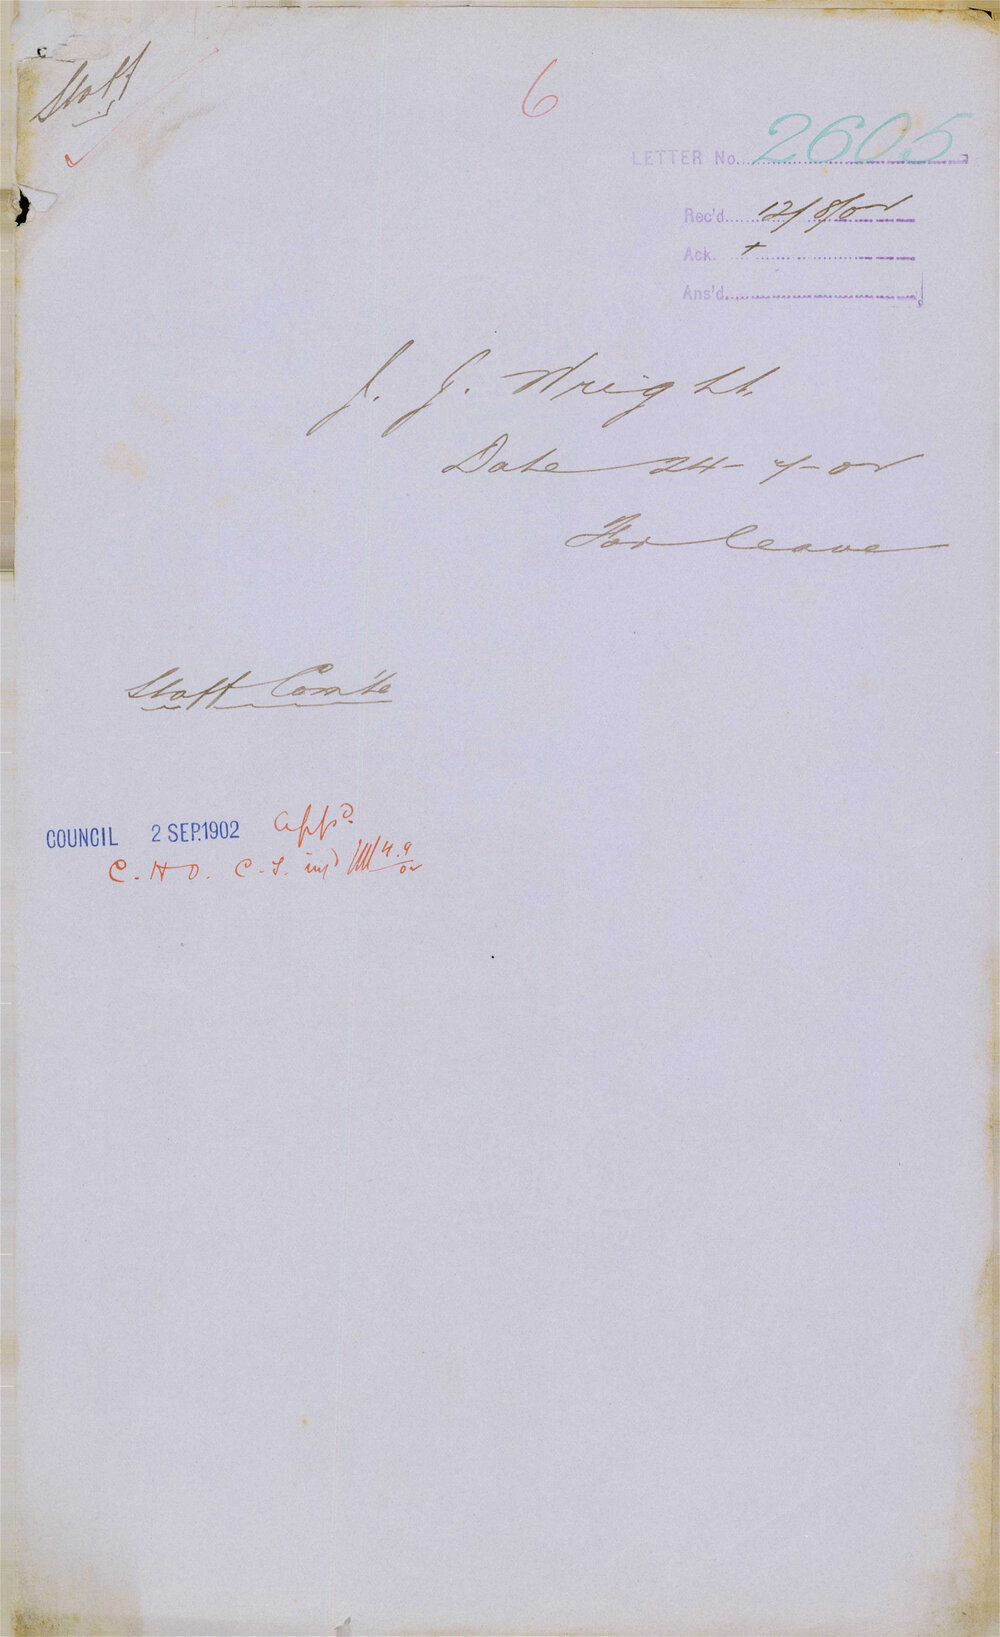 Staff
6
LETTER No. 2605
Rec'd. 12/8/02
Ack.
Ans'd.
J. G. Wright.
Date 24-7-02
For leave
Staff Com'te
COUNCIL 2 SEP. 1902 appd.
C. H O. C. S. infd 4.9/02